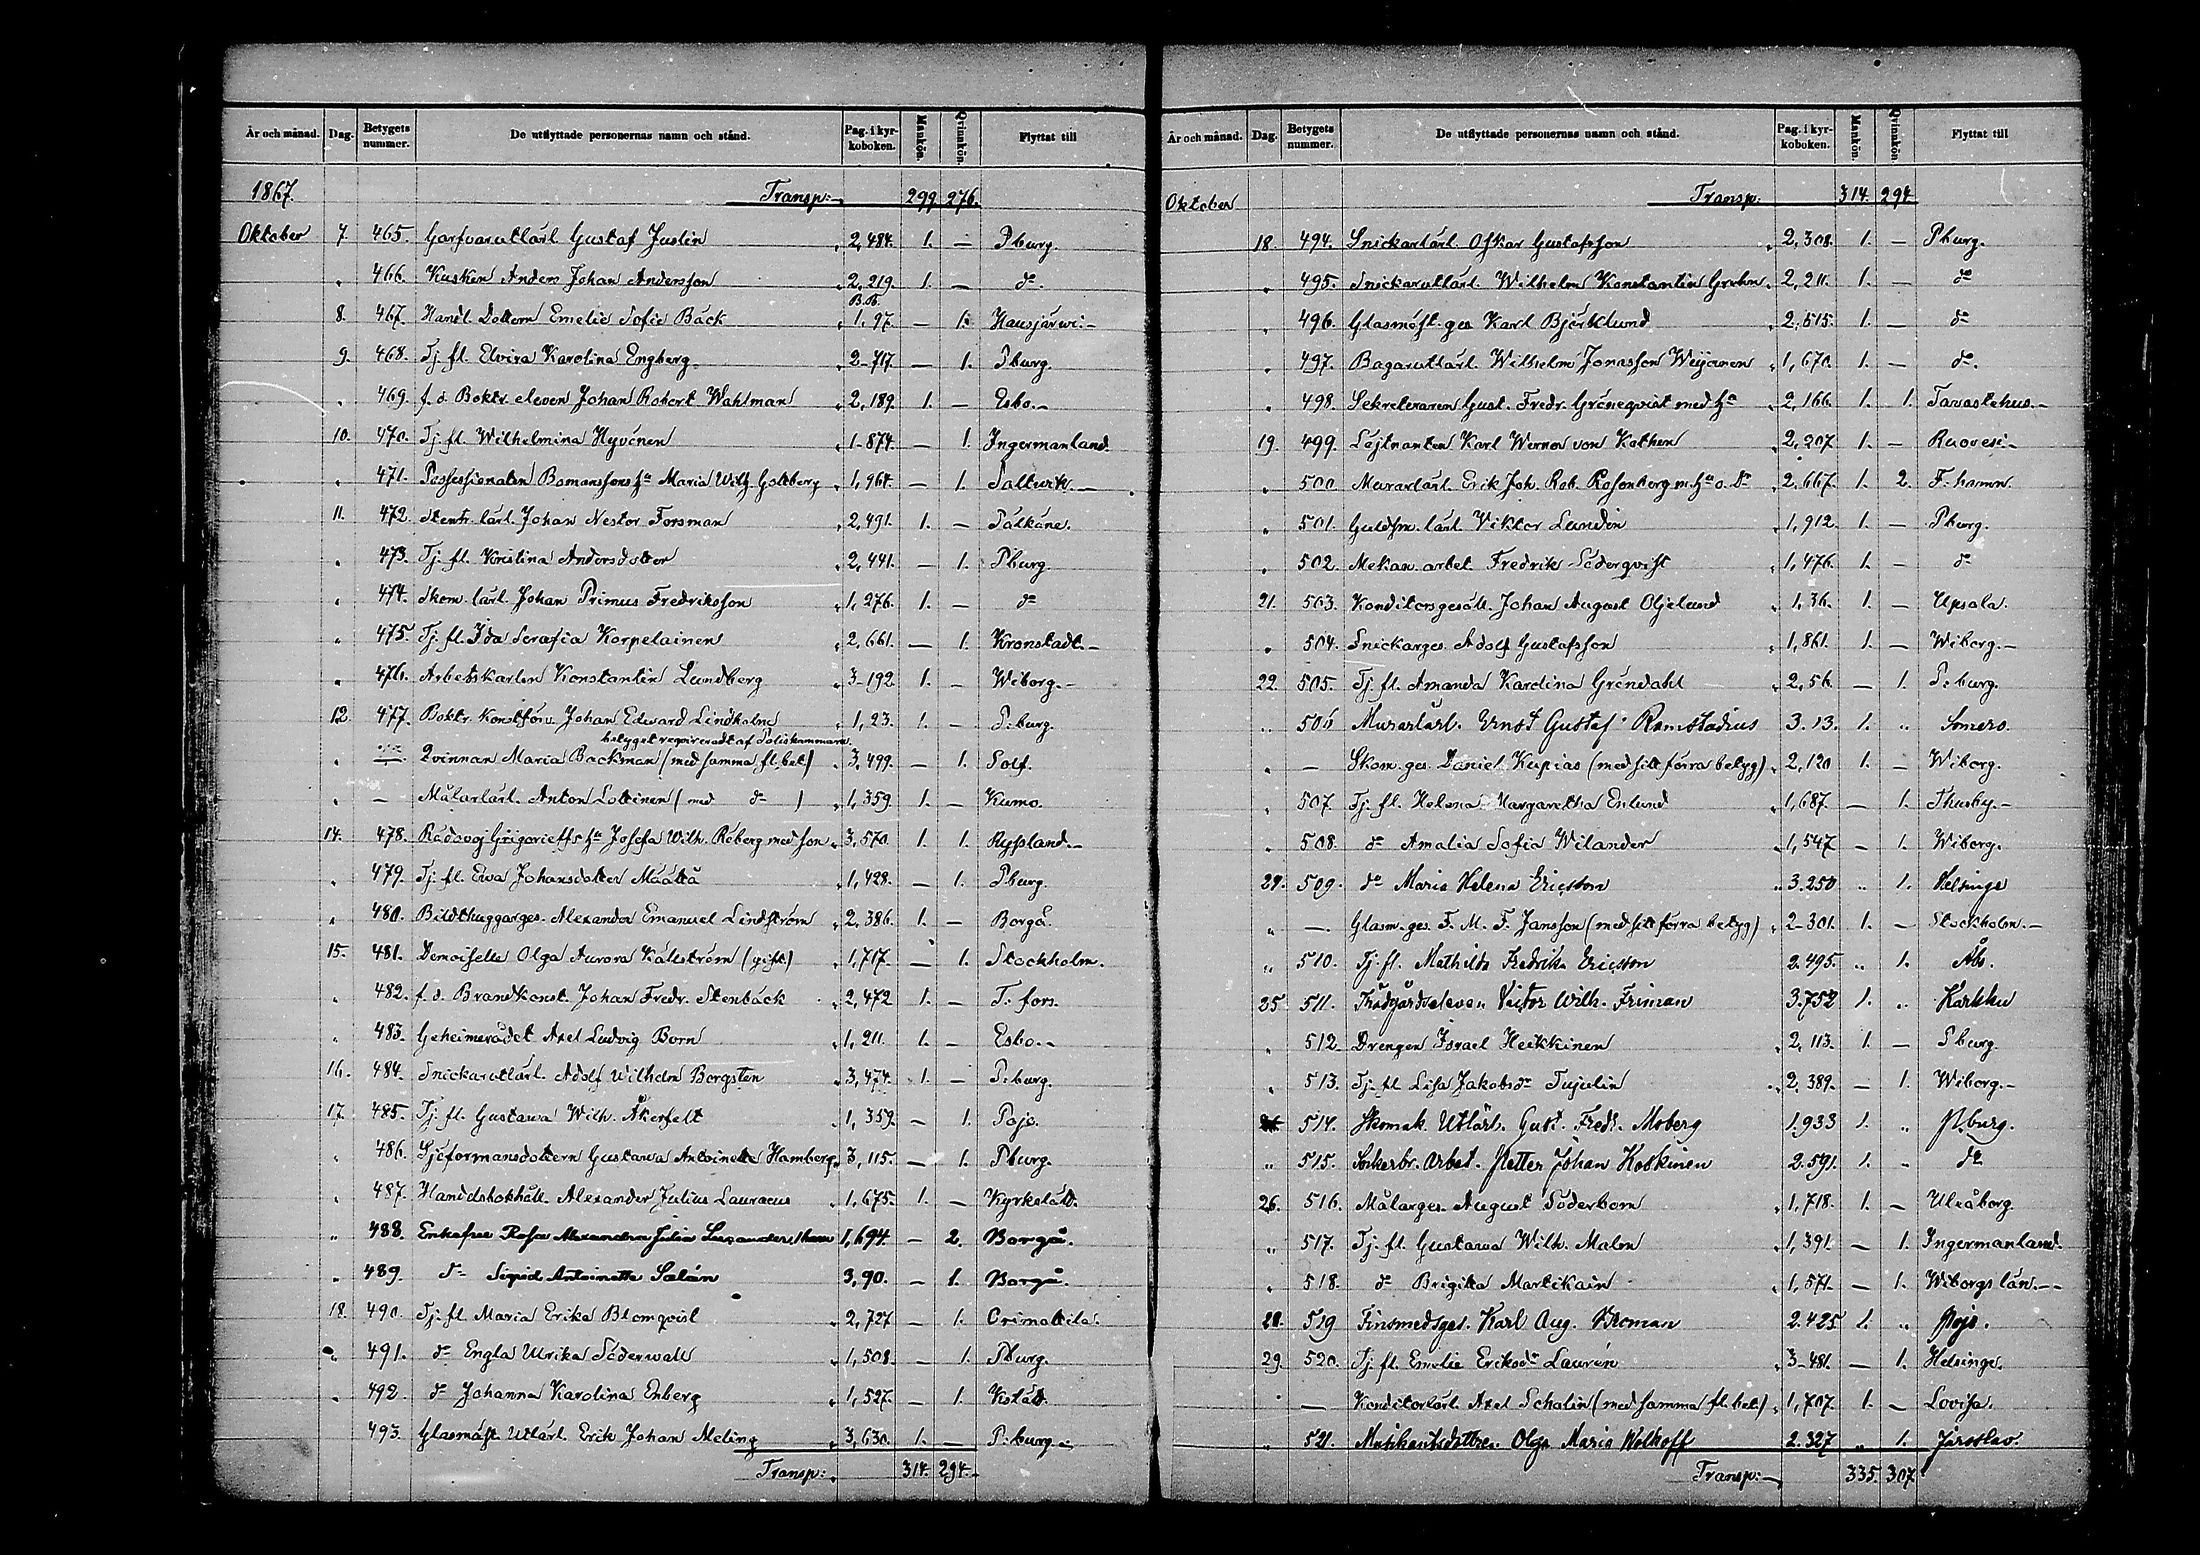 År och månad. Dag. Betygets nummer. De utflyttade personernas namn och stånd. Pag. i kyrkoboken. Mankön. Qvinnkön. Flyttat till
1867. Transp: 299 276.
Oktober 7. 465. Garfvareutlärl. Gustaf Juslin 2,484. 1. — Pburg.
" 466. Kusken Anders Johan Andersson 2,219. 1. — do
8. 467. Handl. Dottern Emelie Sofie Bäck B.B. 1,97. — 1. Hausjärwi.–
9. 468. Tj. fl. Elvira Karolina Engberg 2–717. — 1. Pburg.
" 469. f. d. Boktr. eleven Johan Robert Wahlman 2,189. 1. — Esbo.–
10. 470. Tj. fl. Wilhelmina Hyvönen 1–874. — 1. Ingermanland.
" 471. Possessionaten Bomanssons ha Maria Wilh. Goldberg 1,964. — 1. Tallwik.—
11. 472. Stentr. lärl. Johan Nestor Forsman 2,491. 1. — Pälkäne.
" 473. Tj. fl. Kristina Andersdotter 2,441. — 1. Pburg.
" 474. Skom. lärl. Johan Primus Fredriksson 1,276. 1. — do
" 475. Tj. fl. Ida Serafia Korpelainen 2,661. — 1. Kronstadt.–
" 476. Arbetskarlen Konstantin Lundberg 3–192 1. — Wiborg.–
12. 477. Boktr. Konstförv. Johan Edward Lindholm 1,23. 1. — P:burg.
betyget requireradt af Poliskammaren.
" — Qvinnan Maria Backman (med samma fl. bet) 3,499. — 1. Solf.
" — Målarlärl. Anton Lottinen (med do) 1,359. 1. — Kumo.
14. 478. Rådavoj Grigorieffs ha Josefa Wilh. Råberg med son 3,570. 1. 1. Ryssland.–
" 479. Tj. fl. Ewa Johansdotter Määttä 1,428. — 1. Pburg.
" 480. Bildthuggarges. Alexander Emanuel Lindström 2,386. 1. — Borgå.
15. 481. Demoiselle Olga Aurora Källström (gift) 1,717. — 1. Stockholm.
" 482. f. d. Brandkonst. Johan Fredr. Stenbäck 2,472 1. — T. fors.
" 483. Geheimerådet Axel Ludvig Born 1,211. 1. — Esbo.–
16. 484. Snickareutlärl. Adolf Wilhelm Bergsten 3,474. 1. — P:burg.
17. 485. Tj. fl. Gustawa Wilh. Åkerfelt 1,359. — 1. Pojo.
" 486. Sjöformansdottern Gustawa Antoinetta Hamberg 3,115. — 1. Pburg.
" 487. Handelsbokhåll. Alexander Julius Lauraeus 1,675. 1. — Kyrkslätt.
" 488. Enkefru Rosa Alexandra Julia 1,694. — 2. Borgå.
" 489. do Sigrid Antoinette Salén 3,90. — 1. Borgå.
18. 490. Tj. fl. Maria Erika Blomqvist 2,727 — 1. Orimattila.
" 491. do Engla Ulrika Söderwall 1,508. — 1. Pburg.
" 492. do Johanna Karolina Enberg 1,527. — 1. Kslätt.
493. Glasmäst. Utlärl. Erik Johan Meling 3,630. 1. — P:burg.–
Transp: 314. 294.
År och månad. Dag. Betygets nummer. De utflyttade personernas namn och stånd. Pag. i kyrkoboken. Mankön. Qvinnkön. Flyttat till
Oktober Transp: 314. 294.
18. 494. Snickarlärl. Oskar Gustafsson 2,308. 1. — Pburg.
" 495. Snickareutlärl. Wilhelm Konstantin Grahn 2,211. 1. — do
" 496. Glasmäst. ges Karl Björklund 2,515. 1. — do
" 497. Bagareutlärl. Wilhelm Jonasson Weijonen 1,670. 1. — do.
" 498. Sekreteraren Gust. Fredr. Gröneqvist med ha 2,166. 1. 1. Tavastehus.–
19. 499. Löjtnanten Karl Werner von Kothen 2,207 1. — Ruovesi–
" 500. Murarlärl. Erik Joh. Rob. Rosenberg m. ha o. dr 2,667. 1. 2. F. hamn.
" 501. Guldsm. lärl. Viktor Lundin 1,912. 1. — Pburg.
" 502. Mekan. arbet. Fredrik Söderqvist 1,476. 1. — do
21. 503. Konditorgesäll. Johan August Oljelund 1,36. 1. — Upsala.
" 504. Snickarges. Adolf Gustafsson 1,861. 1. — Wiborg.–
22. 505. Tj. fl. Amanda Karolina Gröndahl 2,56. — 1. P:burg.
" 506 Murarlärl. Ernst Gustaf Ramstadius 3.13. 1. " Somero.
" — Skom. ges. Daniel Kupias (med sitt förra betyg) 2,120 1. — Wiborg.
" 507. Tj. fl. Helena Margaretha Enlund 1,687. — 1. Thusby.–
" 508. do Amalia Sofia Wilander 1,547 — 1. Wiborg.
24. 509. do Maria Helena Ericsson 3.250 " 1. Helsinge
" —. Glasm. ges. F. M. F. Jansson (med sitt förra betyg) 2–301. 1. — Stockholm.–
" 510. Tj. fl. Mathilda Fredrika Ericsson 2.495. " 1. Åbo.
25 511. Trädgårdseleven Victor Wilh. Friman 3.752 1. " Karkku
" 512. Drengen Israel Heikkinen 2,113. 1. — Pburg.
" 513. Tj. fl. Lisa Jakobsdr Tujulin 2,389. — 1. Wiborg.–
" 514. Skomak. Utlärl. Gust. Fredr. Moberg 1.933 1. " Pburg.
" 515. Sockerbr. Arbet. Petter Johan Koskinen 2.591. 1. " do
26. 516. Målarges. August Söderbom 1,718. 1. — Uleåborg.
" 517. Tj. fl. Gustawa Wilh. Malm 1,391. — 1. Ingermanland.
" 518. do Brigitta Martikain 1,571. — 1. Wiborgs län.––
28. 519 Finsmedsges. Karl Aug. Ekoman 2.425 1. " Pojo.
29. 520. Tj. fl. Emelie Eriksdr Laurén 3–481. — 1. Helsinge.
" — Konditorlärl. Axel Schalin (med samma fl. bet) 1,707. 1. — Lovisa.
" 521. Musikantsdottren Olga Maria Wolkoff 2.327 " 1. Jaroslav.
Transp: 335. 307.